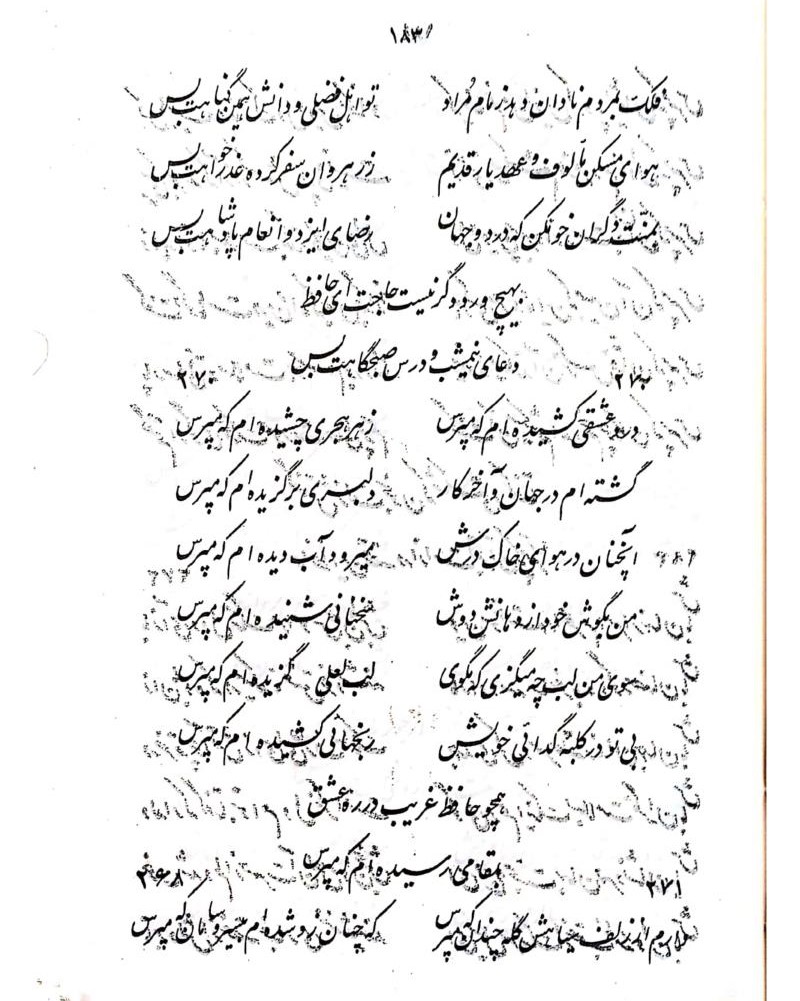 ۱۸۳
فلک بمردم نادان دهد زمام مراد تو اهل فضلی و دانش همین گناهت بس
هوای مسکن مألوف و عهد یار قدیم ز رهروان سفر کرده عذرخواهت بس
بمنت دگران خو مکن که در دو جهان رضای ایزد و انعام پادشاهت بس
بهیچ ورد دگر نیست حاجت ای حافظ
دعای نیمشب و درس صبحگاهت بس
۲۷۰ ۲۷۰
درد عشقی کشیده ام که مپرس زهر هجری چشیده ام که مپرس
گشته ام در جهان و آخر کار دلبری برگزیده ام که مپرس
آنچنان در هوای خاک درش میرود آب دیده ام که مپرس
من بگوش خود از دهانش دوش سخنانی شنیده ام که مپرس
سوی من لب چه میگزی که مگوی لب لعلی گزیده ام که مپرس
بی تو در کلبه گدائی خویش رنجهائی کشیده ام که مپرس
همچو حافظ غریب در ره عشق
بمقامی رسیده ام که مپرس
۲۷۱ ۲۶۸
دارم از زلف سیاهش گله چندان که مپرس که چنان زو شده ام بیسر و سامان که مپرس